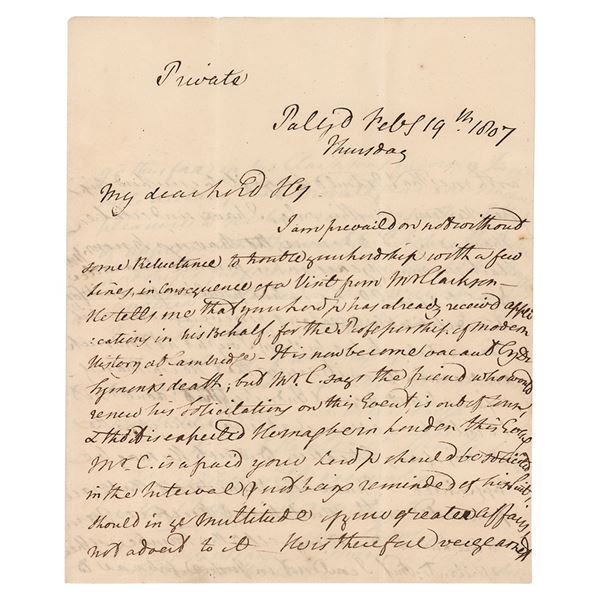 Private
Pal: Yd Feby 19th. 1807
Thursday
My dear Lord Hy.
I am prevail'd on not without
some Reluctance to trouble your Lordship with a few
Lines, in Consequence of a Visit from Mr Clarkson—
He tells me that your Lordp has already receivd appli
:cations in his Behalf for the Professorship of Modern
History at Cambridge— It is now become vacant by Dr
Symons's death; but Mr. C. says the friend who would
renew his Solicitations on this Event is out of Town,
& tho it is expected He may be in London this Eveng
Mr. C. is afraid your Lordp should be solicited
in the Interval & not being reminded of his Suit,
should in ye Multitude of your greater affairs,
not advert to it He is therefore very earnest